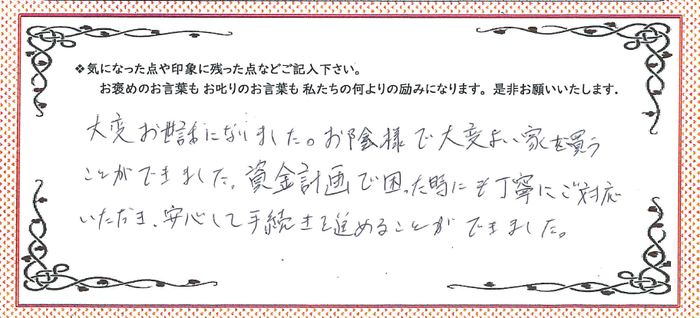 ❖気になった点や印象に残った点などご記入下さい。
お褒めのお言葉も お叱りのお言葉も 私たちの何よりの励みになります。是非お願いいたします.
大変お世話になりました。お陰様で大変よい家を買う
ことができました。資金計画で困った時にも丁寧にご対応
いただき、安心して手続きを進めることができました。